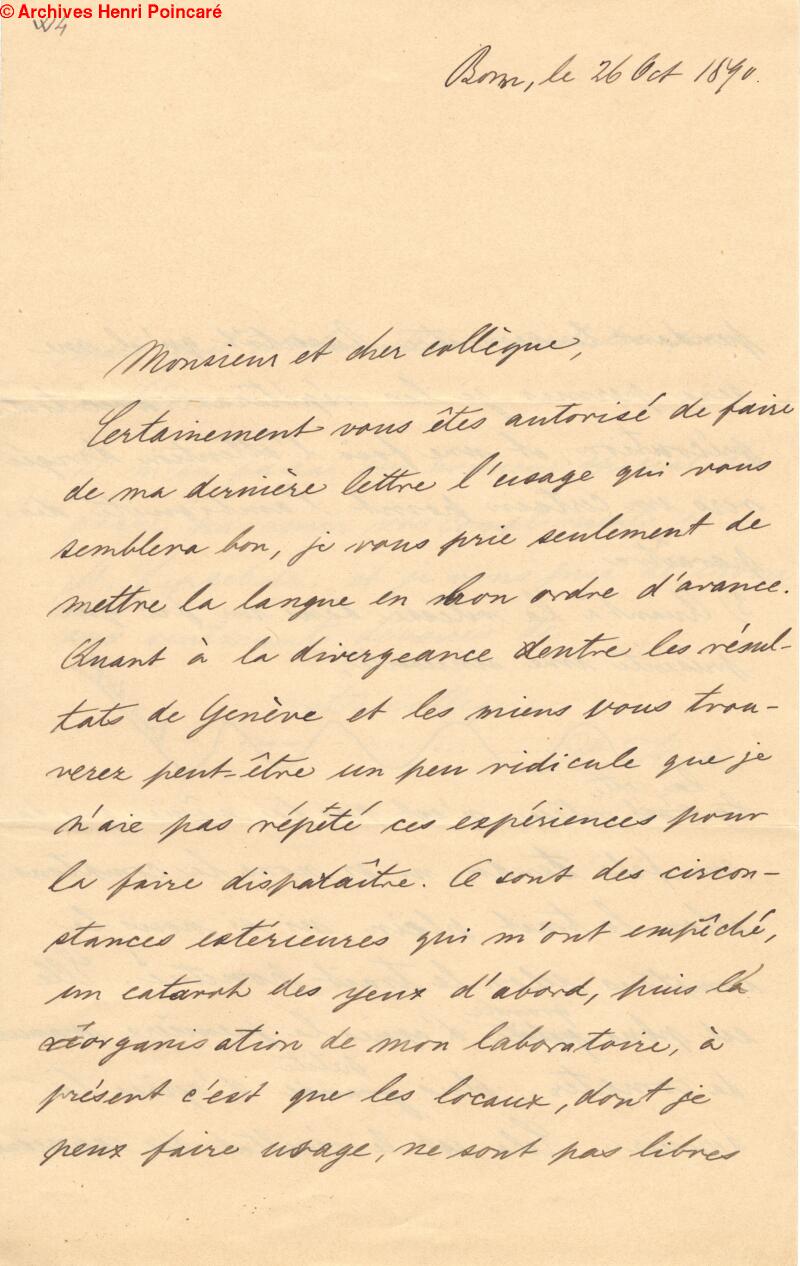 © Archives Henri Poincaré
Bonn, le 26 Oct 1890.
Monsieur et cher collègue,
Certainement vous êtes autorisé de faire
de ma dernière lettre l'usage qui vous
semblera bon, je vous prie seulement de
mettre la langue en bon ordre d'avance.
Quant à la divergeance entre les résul-
tats de Genève et les miens vous trou-
verez peut-être un peu ridicule que je
n'aie pas répété ces expériences pour
la faire disparaître. Ce sont des circon-
stances extérieures qui m'ont empêché,
un catarrh des yeux d'abord, puis la
réorganisation de mon laboratoire, à
présent c'est que les locaux, dont je
peux faire usage, ne sont pas libres